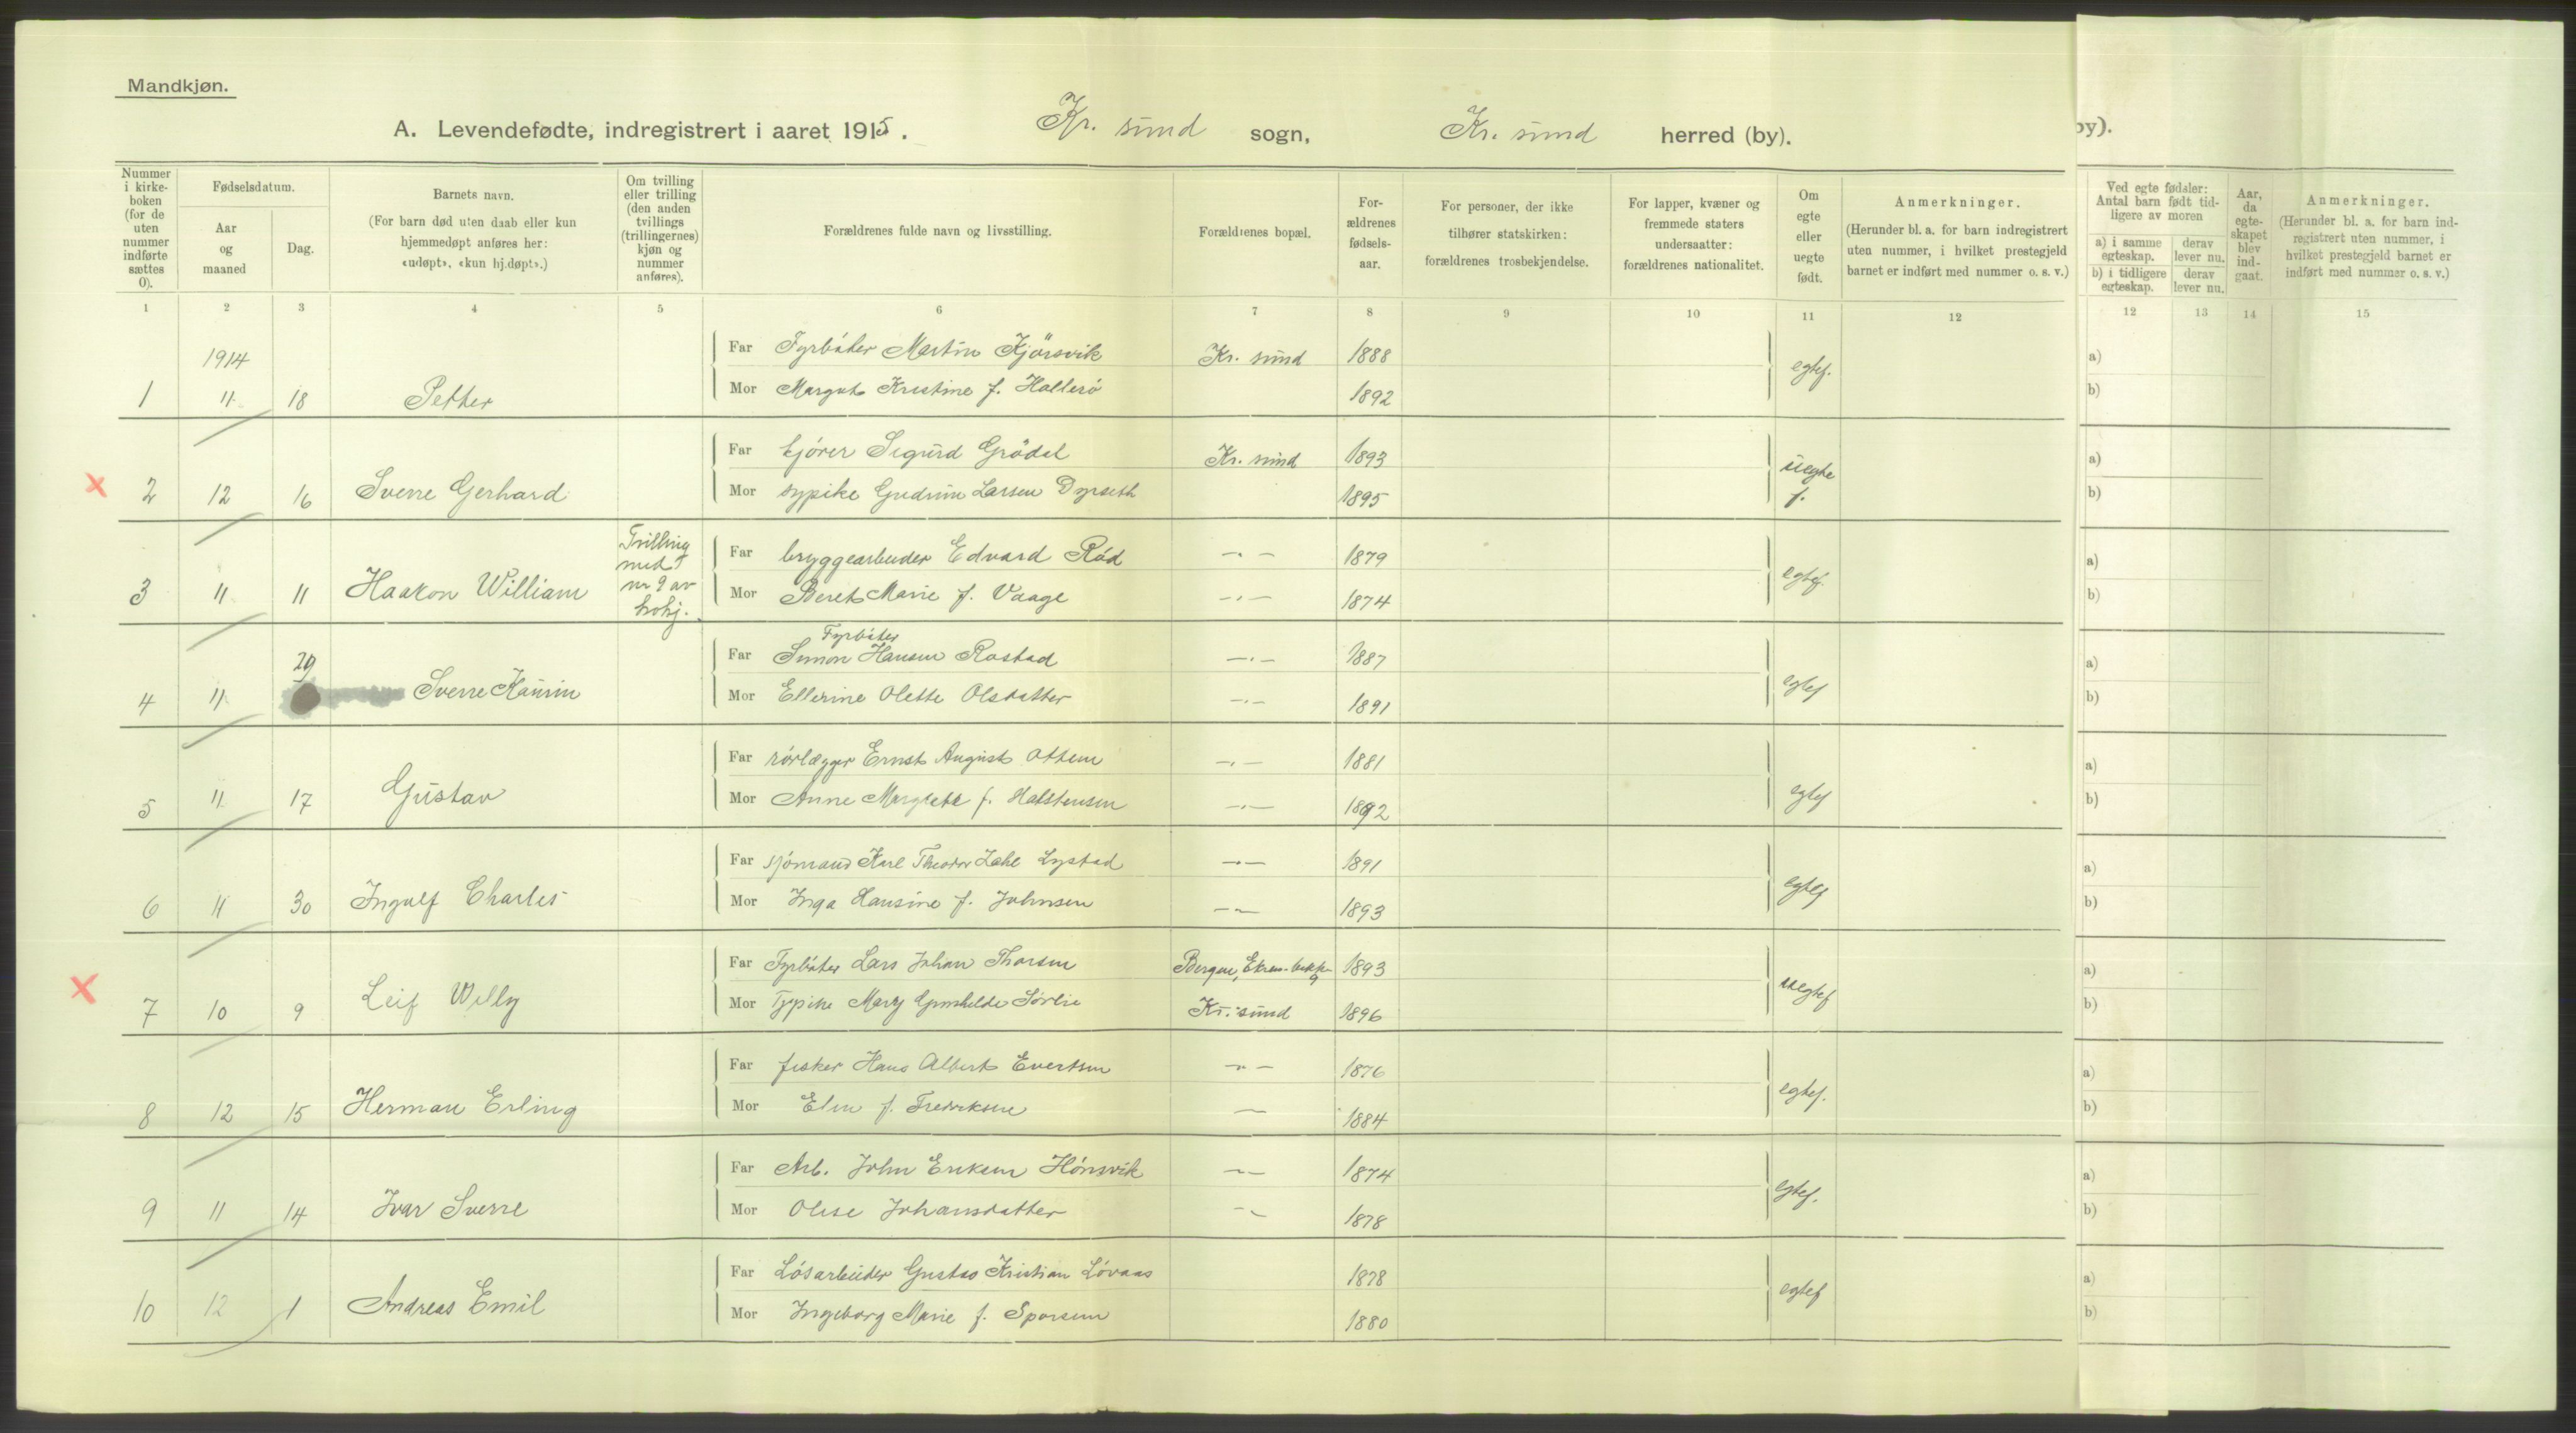 Mandkjøn.
A. Levendefødte, indregistrert i aaret 1915. Kr. sund sogn, Kr. sund herred (by).
by).
Nummer i kirkeboken (for de uten nummer indførte sættes 0).
Fødselsdatum.
Aar og maaned
Dag.
Barnets navn.
(For barn død uten daab eller kun hjemmedøpt anføres her: «udøpt», «kun hj.døpt».)
Om tvilling eller trilling (den anden tvillings (trillingernes) kjøn og nummer anføres).
Forældrenes fulde navn og livsstilling.
Forældrenes bopæl.
Forældrenes fødselsaar.
For personer, der ikke tilhører statskirken: forældrenes trosbekjendelse.
For lapper, kvæner og fremmede staters undersaatter: forældrenes nationalitet.
Om egte eller uegte født.
Anmerkninger.
(Herunder bl. a. for barn indregistrert uten nummer, i hvilket prestegjeld barnet er indført med nummer o. s. v.)
Ved egte fødsler: Antal barn født tidligere av moren
a) i samme egteskap. derav lever nu.
b) i tidligere egteskap. derav lever nu.
Aar, da egteskapet blev indgaat.
Anmerkninger.
(Herunder bl. a. for barn indregistrert uten nummer, i hvilket prestegjeld barnet er indført med nummer o. s. v.)
1 2 3 4 5 6 7 8 9 10 11 12 12 13 14 15
1914
Far Fyrbøter Martin Kjørsvik Kr. sund 1888 egtef. a)
1 11 18 Petter Mor Margit Kristine f. Hallerø 1892 b)
Far kjører Sigurd Grødal Kr. sund 1893 uegte f. a)
2 12 16 Sverre Gerhard Mor sypike Gudrun Larsen Dyrseth 1895 b)
Trilling med nr 9 av kvkj.
Far bryggearbeider Edvard Rød —„— 1879 egtef. a)
3 11 11 Haakon William Mor Beret Marie f. Vaage —„— 1874 b)
Fyrbøter
Far Simon Hansen Rostad —„— 1887 egtef a)
4 11 29 Sverre Kaurin Mor Ellerine Olette Olsdatter —„— 1891 b)
Far rørlægger Ernst August Ottem —„— 1881 egtef a)
5 11 17 Gustav Mor Anne Margrete f. Halstensen —„— 1892 b)
Far sjømand Karl Theodor Lystad —„— 1891 egtef a)
6 11 30 Ingolf Charles Mor Inga Hansine f. Johnsen —„— 1893 b)
Far Fyrbøter Lars Johan Thorsen Bergen, 1893 uegtef a)
7 10 9 Leif Willy Mor Mary Gunhilde Sørlie Kr. sund 1896 b)
Far fisker Hans Albert Evertsen —„— 1876 egtef. a)
8 12 15 Herman Erling Mor Elen f. Fredriksen —„— 1884 b)
Far Arb. John Eriksen Hønsvik —„— 1874 egtef. a)
9 11 14 Ivar Sverre Mor Olise Johansdatter —„— 1878 b)
Far Løsarbeider Gustav Kristian Løvaas 1878 egtef a)
10 12 1 Andreas Emil Mor Ingeborg Marie f. Sporsem 1880 b)